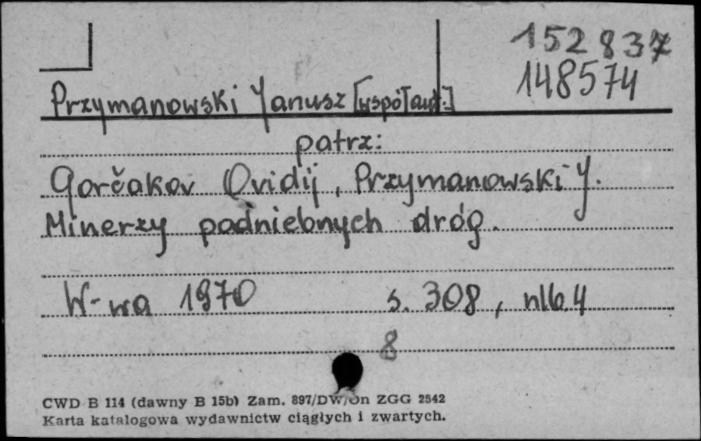 152 837
148574
Przymanowski Janusz [współaut.]
patrz:
Gorčakov Ovidij, Przymanowski J.
Minerzy podniebnych dróg.
W-wa 1970 s. 308, nlb. 4
8
CWD B 114 (dawny B 15b) Zam. 897/DW/On ZGG 2542
Karta katalogowa wydawnictw ciągłych i zwartych.